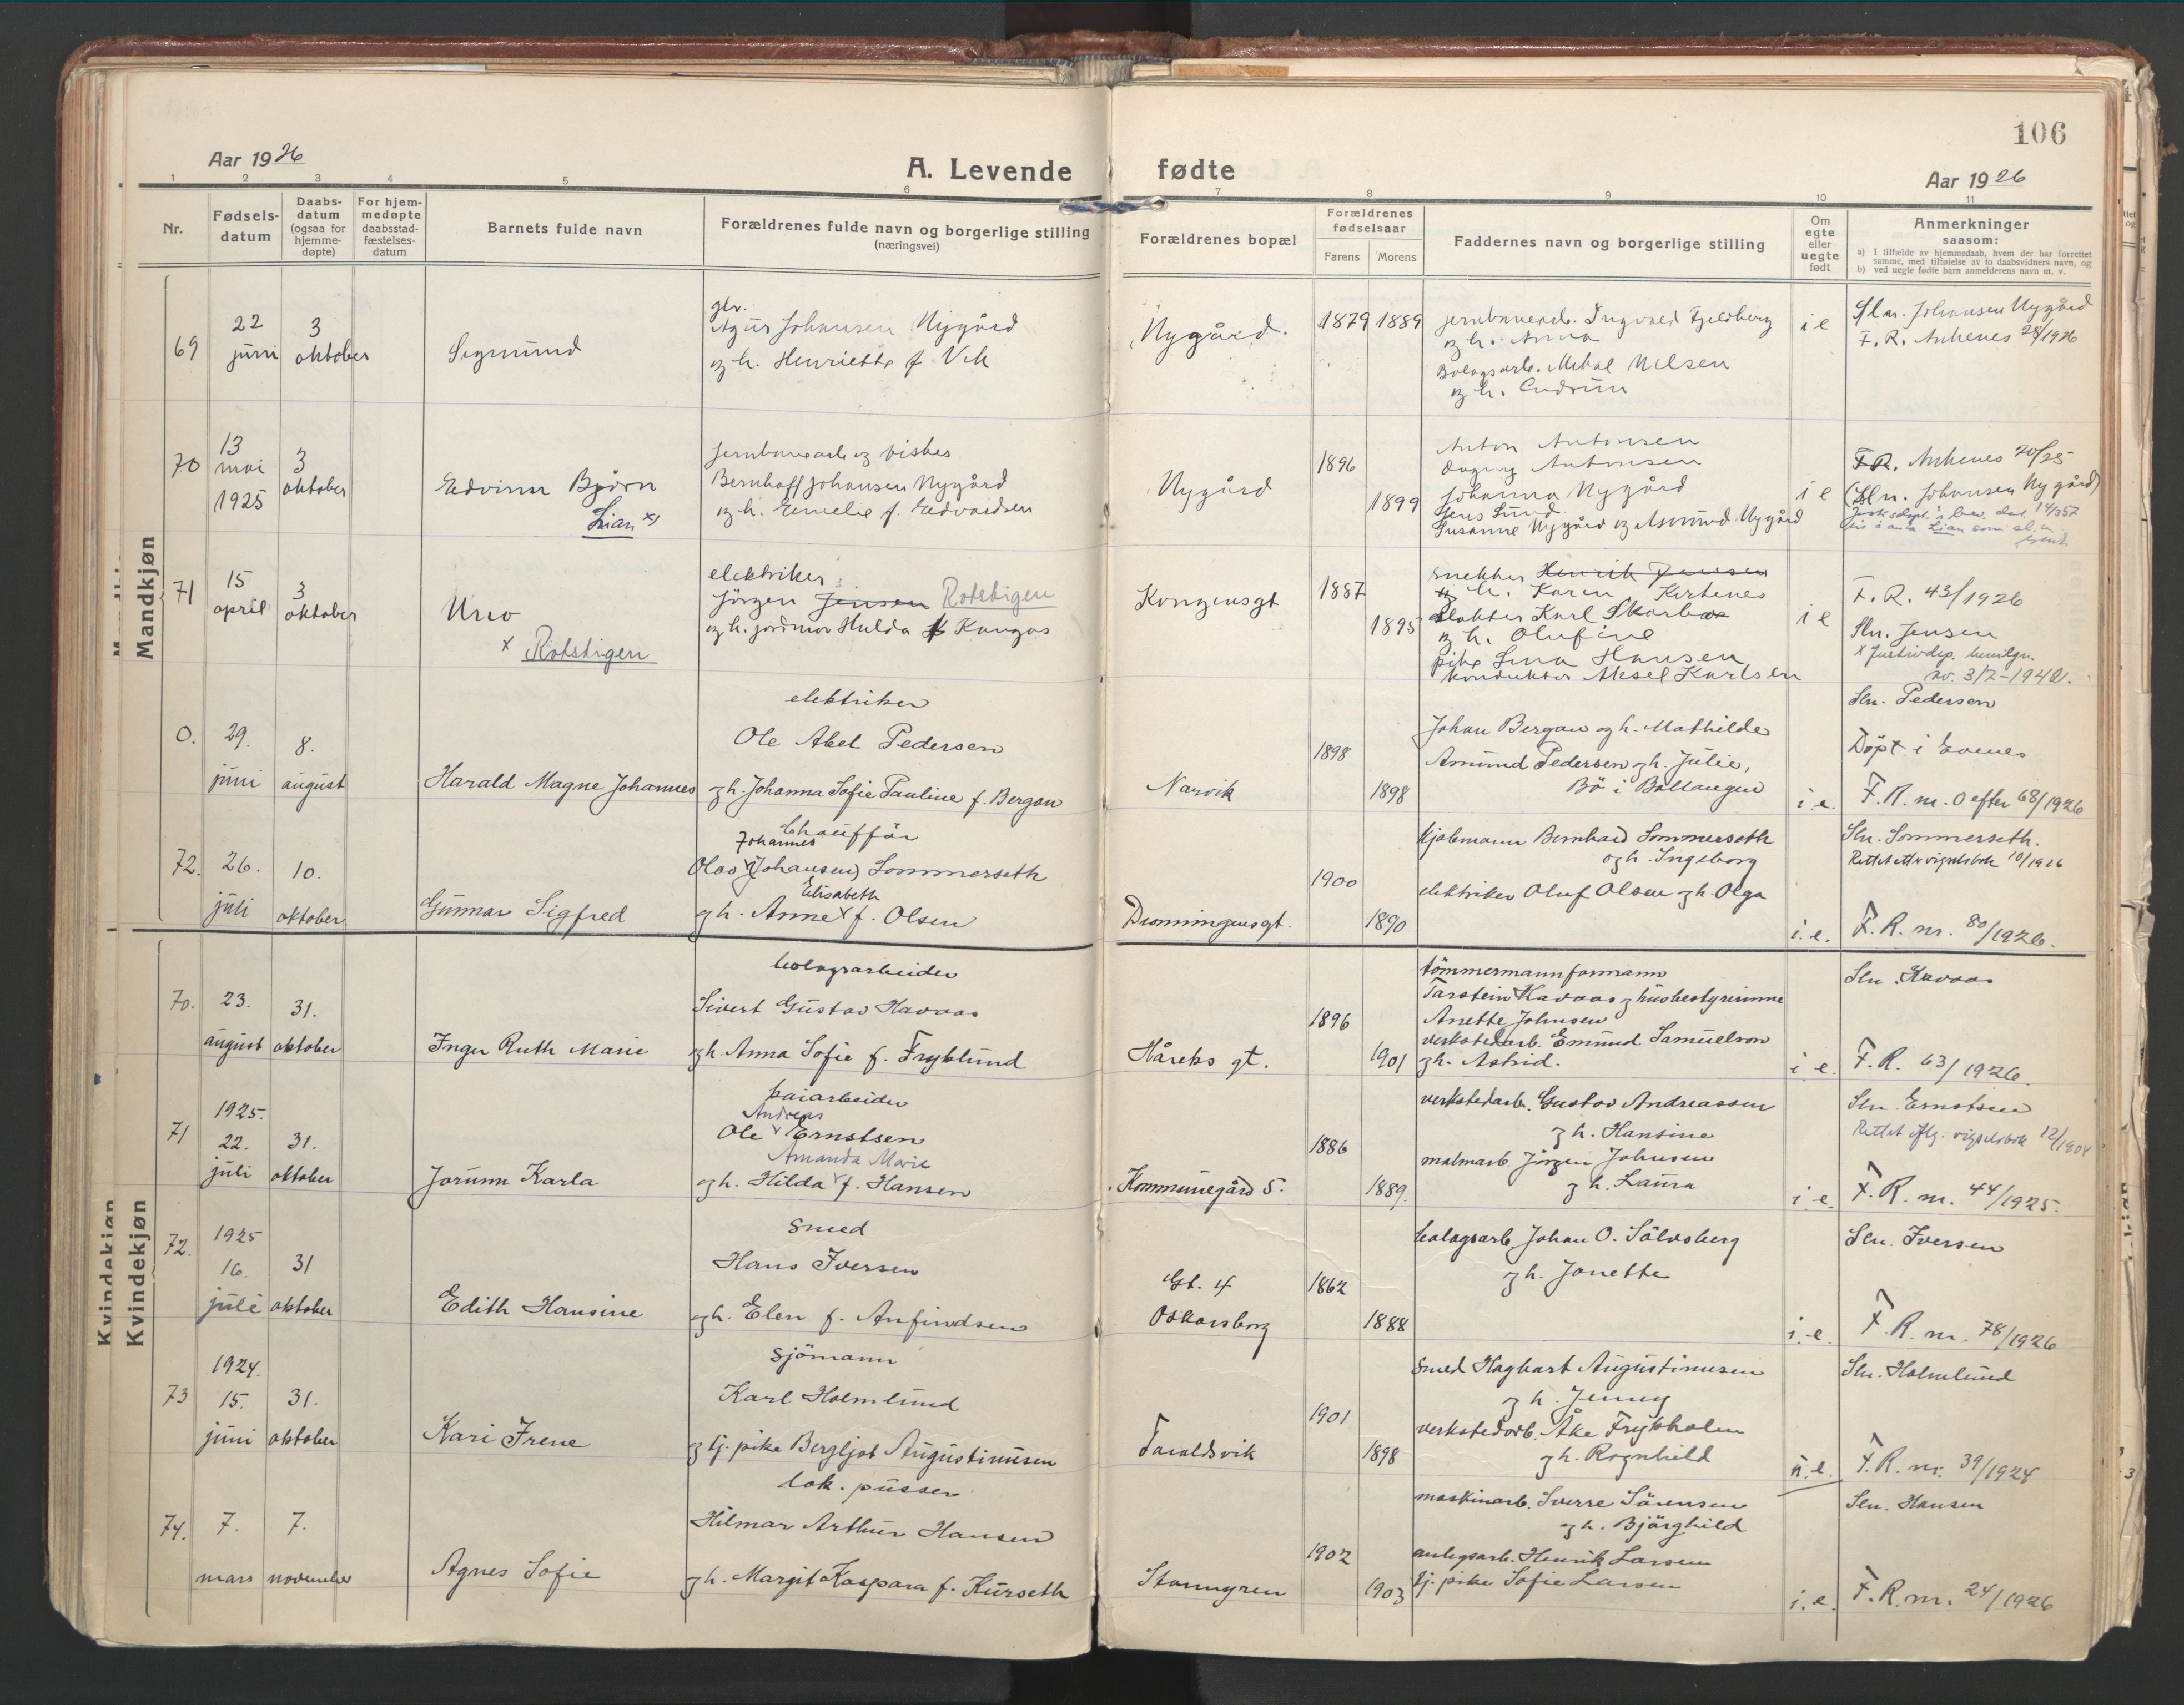 106
Aar 1926
A. Levende
fødte
Aar 1926
1 2 3 4 5 6 7 8 9 10 11
Nr.
Fødsels-
datum
Daabs-
datum
(ogsaa for
hjemme-
døpte)
For hjem-
medøpte
daabsstad-
fæstelses-
datum
Barnets fulde navn
Forældrenes fulde navn og borgerlige stilling
(næringsvei)
Forældrenes bopæl
Forældrenes
fødselsaar
Farens
Morens
Faddernes navn og borgerlige stilling
Om
egte
eller
uegte
født
Anmerkninger
saasom:
a) I tilfælde av hjemmedaab, hvem der har forrettet
samme, med tilføielse av to daabsvidners navn, og
b) ved uegte fødte barn anmelderens navn m. v.
Mandkjøn
69
22
juni
3
oktober
Sigmund
Johansen Nygård
og h. Henriette f. Vik
Nygård.
1879
1889
jernbanearb. Ingvald Fjeldberg
og h. Anna
Bolagsarb. Mikal Nilsen
og h. Gudrun
i e
Sln. Johansen Nygård
F. R. Ankenes 28/1926
70
13
mai
1925
3
oktober
Edvinn Bjørn
Lian x)
jernbanearb og
Bernhoff Johansen Nygård
og h. Emelie f. Edvardsen
Nygård
1896
1899
Anton Antonsen
Dagny Antonsen
Johanna Nygård
Jens Lund
Susanne Nygård og Asmund Nygård
i e
F.R. Ankenes 20/25
(Sln. Johansen Nygård)
71
15
april
3
oktober
Uno
x Rotstigen
elektriker
Jörgen Jensen Rotstigen
og h. jordmor Hulda f Kangas
Kongensgt
1887
1895
snekker Henrik Jensen
og h. Karen Kirkenes
Karl
og h. Olufine
pike Lina Hansen
konduktør Aksel Karlsen
i e
F. R. 43/1926
Sln. Jensen
x Justisdep. bevilgn.
av 3/7-1940.
0.
29.
juni
8.
august
Harald Magne Johannes
elektriker
Ole Abel Pedersen
og h. Johanna Sofie Pauline f. Bergan
Narvik
1898
1898
Johan Bergan og h. Mathilde
Amund Pedersen og h. Julie,
Bö i Ballangen
i. e.
Sln. Pedersen
Döpt i Evenes
F. R. nr. 0 efter 68/1926
72.
26.
juli
10.
oktober.
Gunnar Sigfred
Chaufför
Johannes
Olav x (Johansen) Sommerseth
Elisabeth
og h. Anne x f. Olsen
Dronningensgt.
1900
1890
kjøbmann Bernhard Sommerseth
og h. Ingeborg
elektriker Oluf Olsen og h. Olga
i. e.
Sln. Sommerseth.
Rettet etter vigselsbok 10/1926
F. R. nr. 80/1926.
Kvindekjøn
70.
23.
august
31.
oktober
Inger Ruth Marie
bolagsarbeider
Sivert Gustav Havaas
og h. Anna Sofie f. Fryklund
Håreks gt.
1896
1901
tömmermannformann
Tarstein Havaas og husbestyrerinne
Anette Johnsen
verkstedarb. Emund Samuelson
og h. Astrid.
i e.
Sln. Havaas
F. R. 63/1926.
71
1925.
22.
juli
31.
oktober
Jorunn Karla
kaiarbeider
Andreas
Ole x Ernstsen
Amanda Marie
og h. Hilda x f. Hansen
Kommunegård 5.
1886
1889.
verkstedarb. Gustav Andreassen
og h. Hansine
malmarb. Jörgen Johnsen
og h. Laura
i e.
Sln. Ernstsen
Rettet iflg. vigselsbok 12/1904
F. R. nr. 44/1925.
72.
1925
16.
juli
31
oktober
Edith Hansine
Smed
Hans Iversen
og h. Elen f. Anfindsen
Gt. 4
Oskarsborg
1862
1888
bolagsarb Johan O. Sölvsberg
og h. Jonette
i. e.
Sln. Iversen
F. R. nr. 78/1926
73
1924.
15.
juni
31.
oktober
Kari Irene
Sjömann
Karl Holmlund
og tj. pike Bergljot Augustinusen
Taraldsvik
1901
1898
smed Hagbart Augustinusen
og h. Jenny
verkstedarb. Åke Frykholm
og h. Ragnhild
u. e.
Sln. Holmlund
F. R. nr. 39/1924
74.
7.
mars
7.
november
Agnes Sofie
lok. pusser
Hilmar Arthur Hansen
og h. Margit Kaspara f. Kurseth
Stormyren
1902
1903
maskinarb. Sverre Sörensen
og h. Björghild
anlegsarb. Henrik Larsen
tj. pike Sofie Larsen
i. e.
Sln. Hansen
F. R. nr. 24/1926